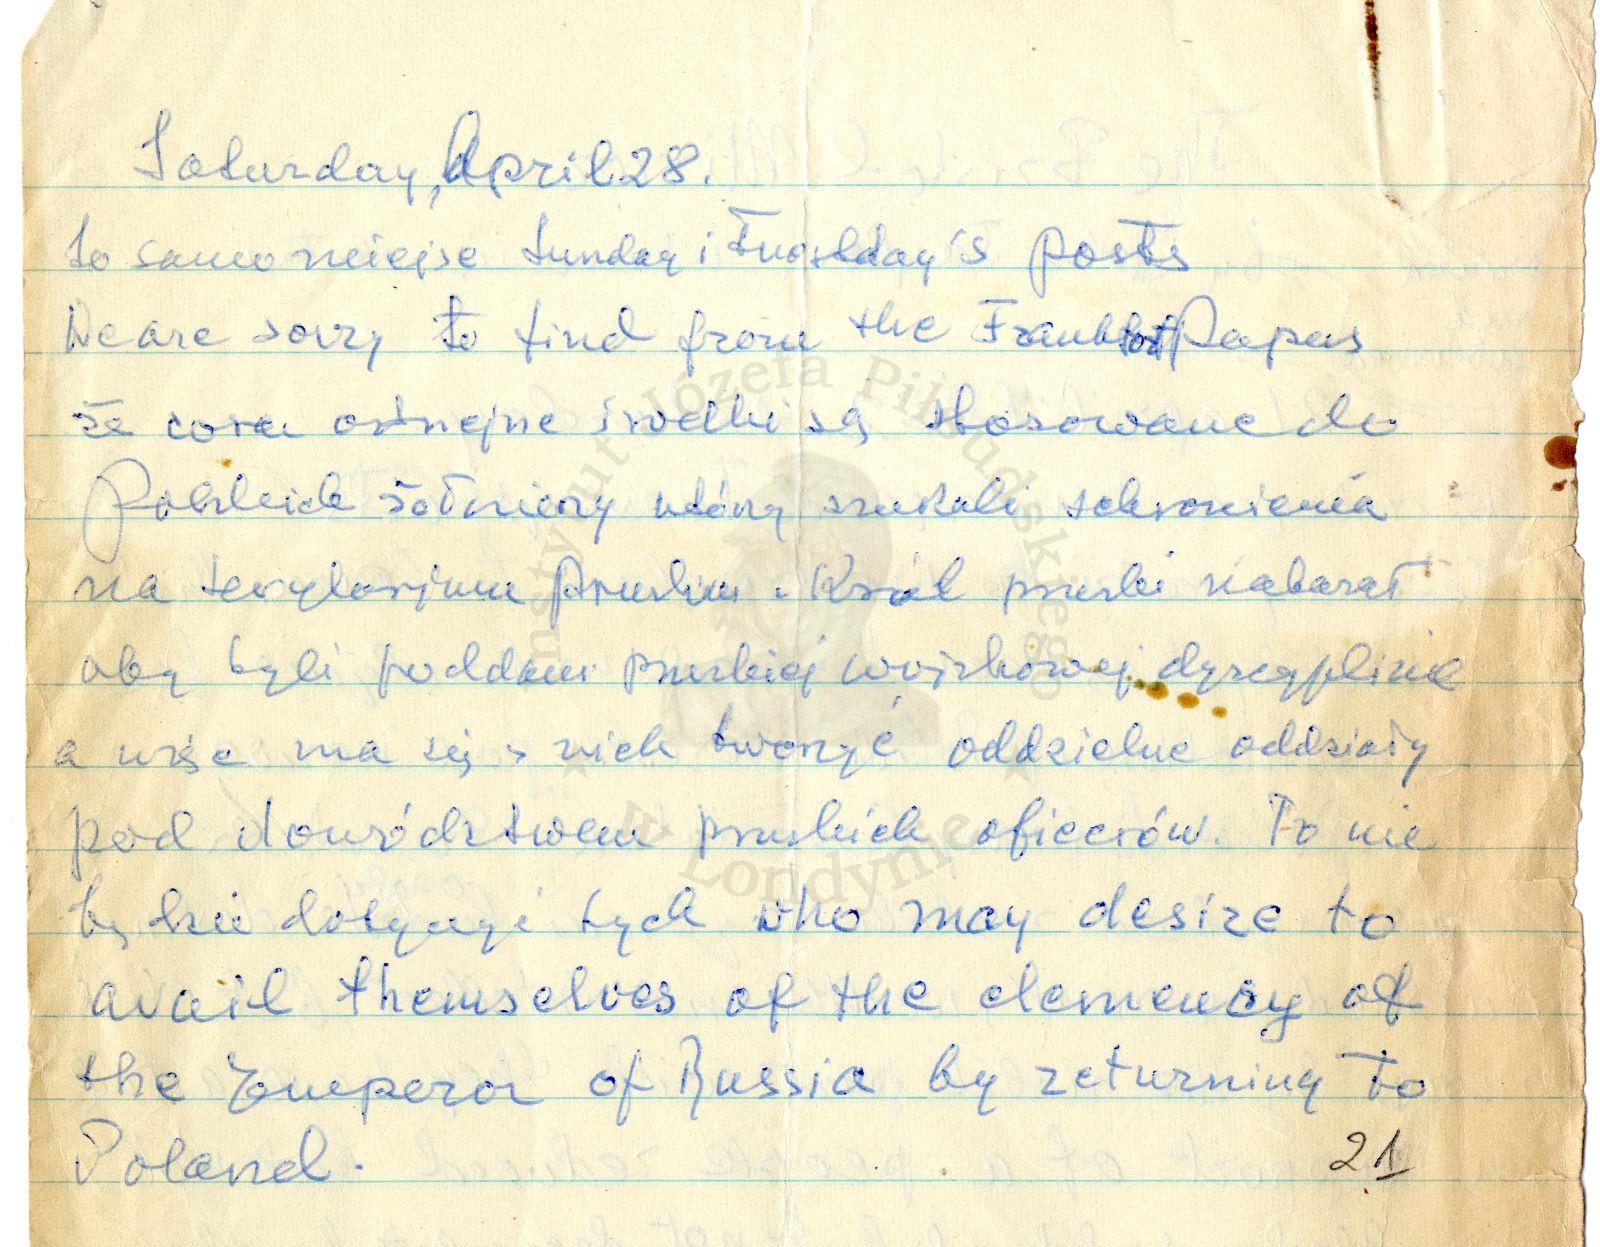 Saturday, April 28.
to samo miejsce Sunday i Tuesday's posts
We are sorry to find from the Frankfort Papers
że coraz ostrzejsze środki są stosowane do
Polskich żołnierzy którzy szukali schronienia
na terytorium Pruskim. Król pruski nakazał
aby byli poddani pruskiej wojskowej dyscyplinie
a więc ma się z nich tworzyć oddzielne oddziały
pod dowództwem pruskich oficerów. To nie
będzie dotyczyć tych who may desire to
avail themselves of the clemency of
the Emperor of Russia by returning to
Poland.
21
Instytut Józefa Piłsudskiego
w Londynie